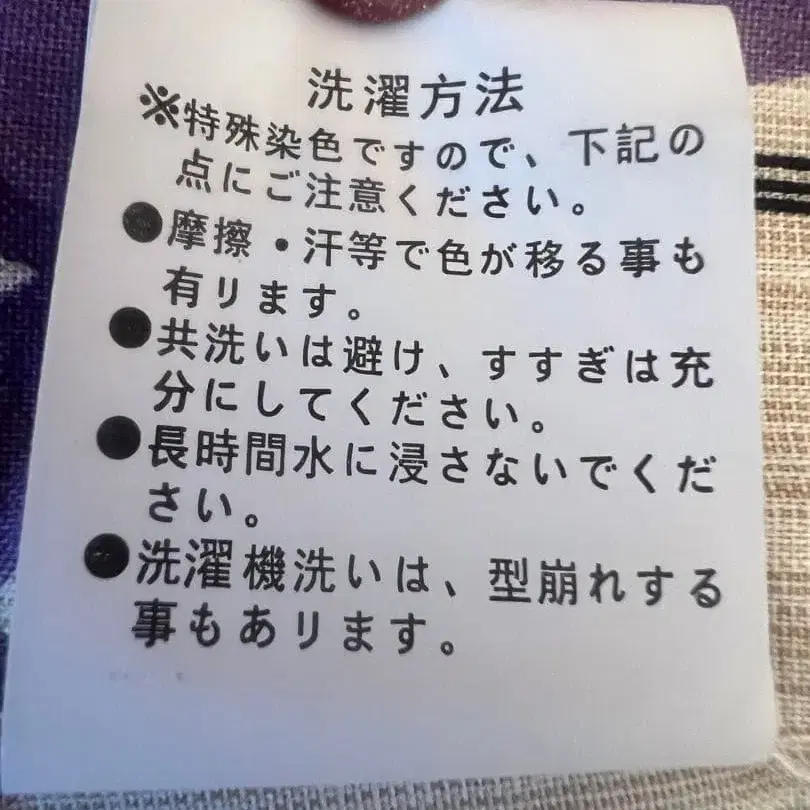 洗濯方法
※特殊染色ですので、下記の
点にご注意ください。
●摩擦・汗等で色が移る事も
有ります。
●共洗いは避け、すすぎは充
分にしてください。
●長時間水に浸さないでくだ
さい。
●洗濯機洗いは、型崩れする
事もあります。